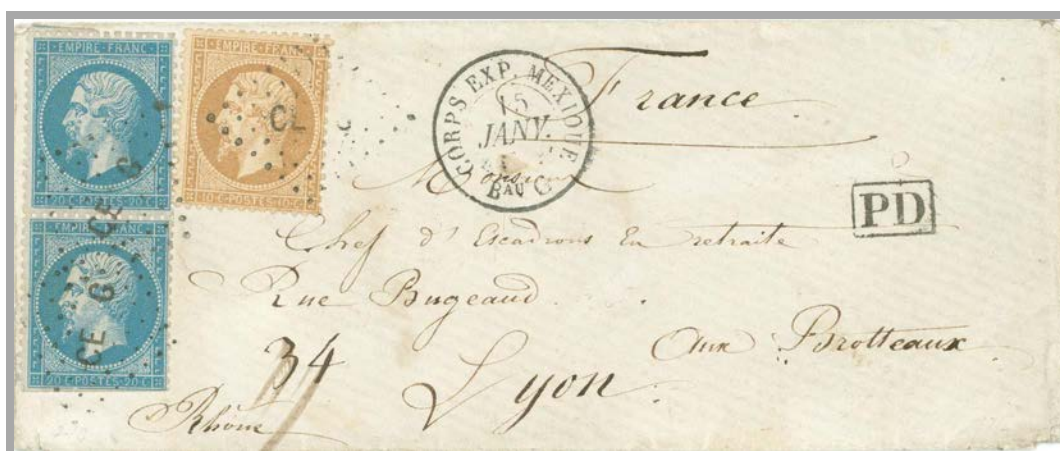 EMPIRE FRANC
20 C POSTES 20 C
EMPIRE FRANC
20 C POSTES 20 C
EMPIRE FRANC
10 C POSTES 10 C
CE G
CE G
CE
CORPS EXP. MEXIQUE
15
JANV.
BAU G
France
PD
Chef d'Escadrons En retraite
Rue Bugeaud
34
Aux Brotteaux
Lyon
Rhône